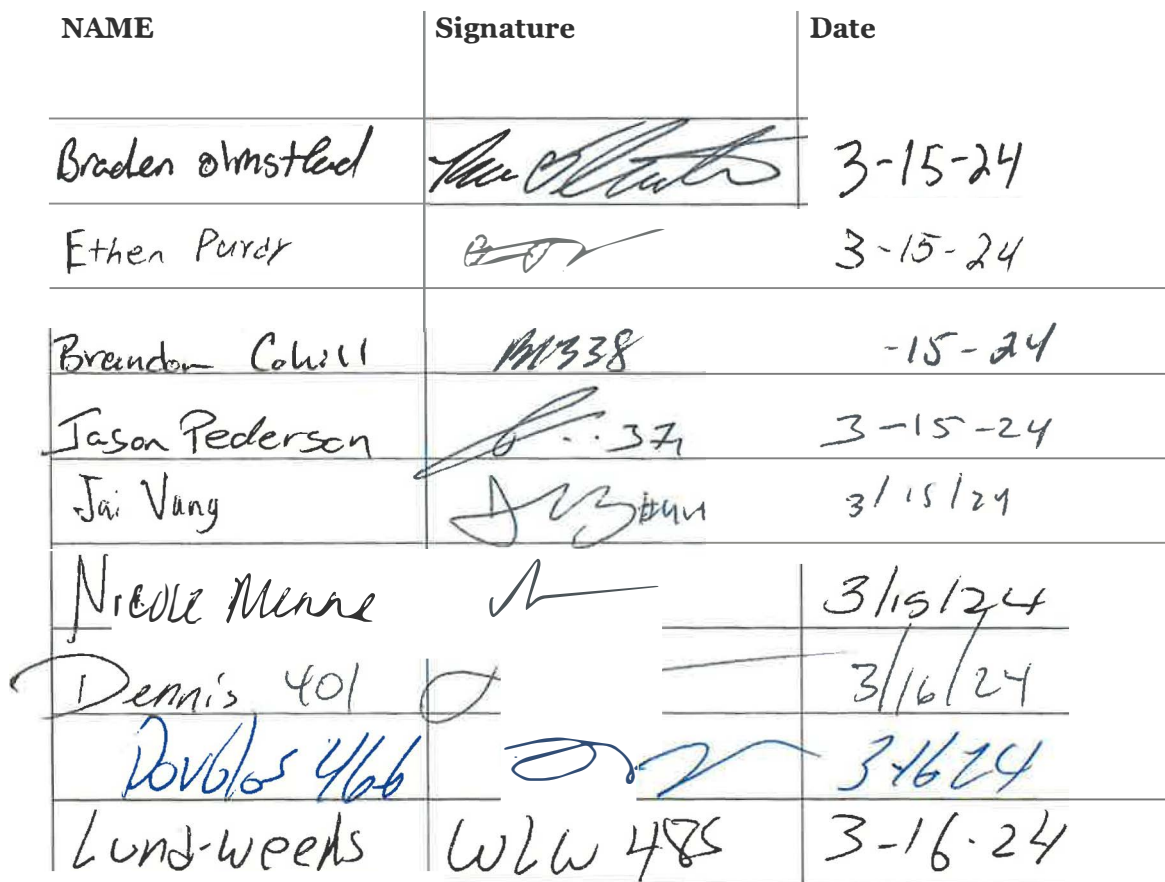 NAME Signature Date
Braden Olmstead 3-15-24
Ethen Purdy 3-15-24
Brandon Cahill 338 -15-24
Jason Pederson 371 3-15-24
Jai Vang #441 3/15/24
Nicole Menne 3/15/24
Dennis 401 3/16/24
Douglas 466 3-16 24
Lund-Weeks WLW 485 3-16-24